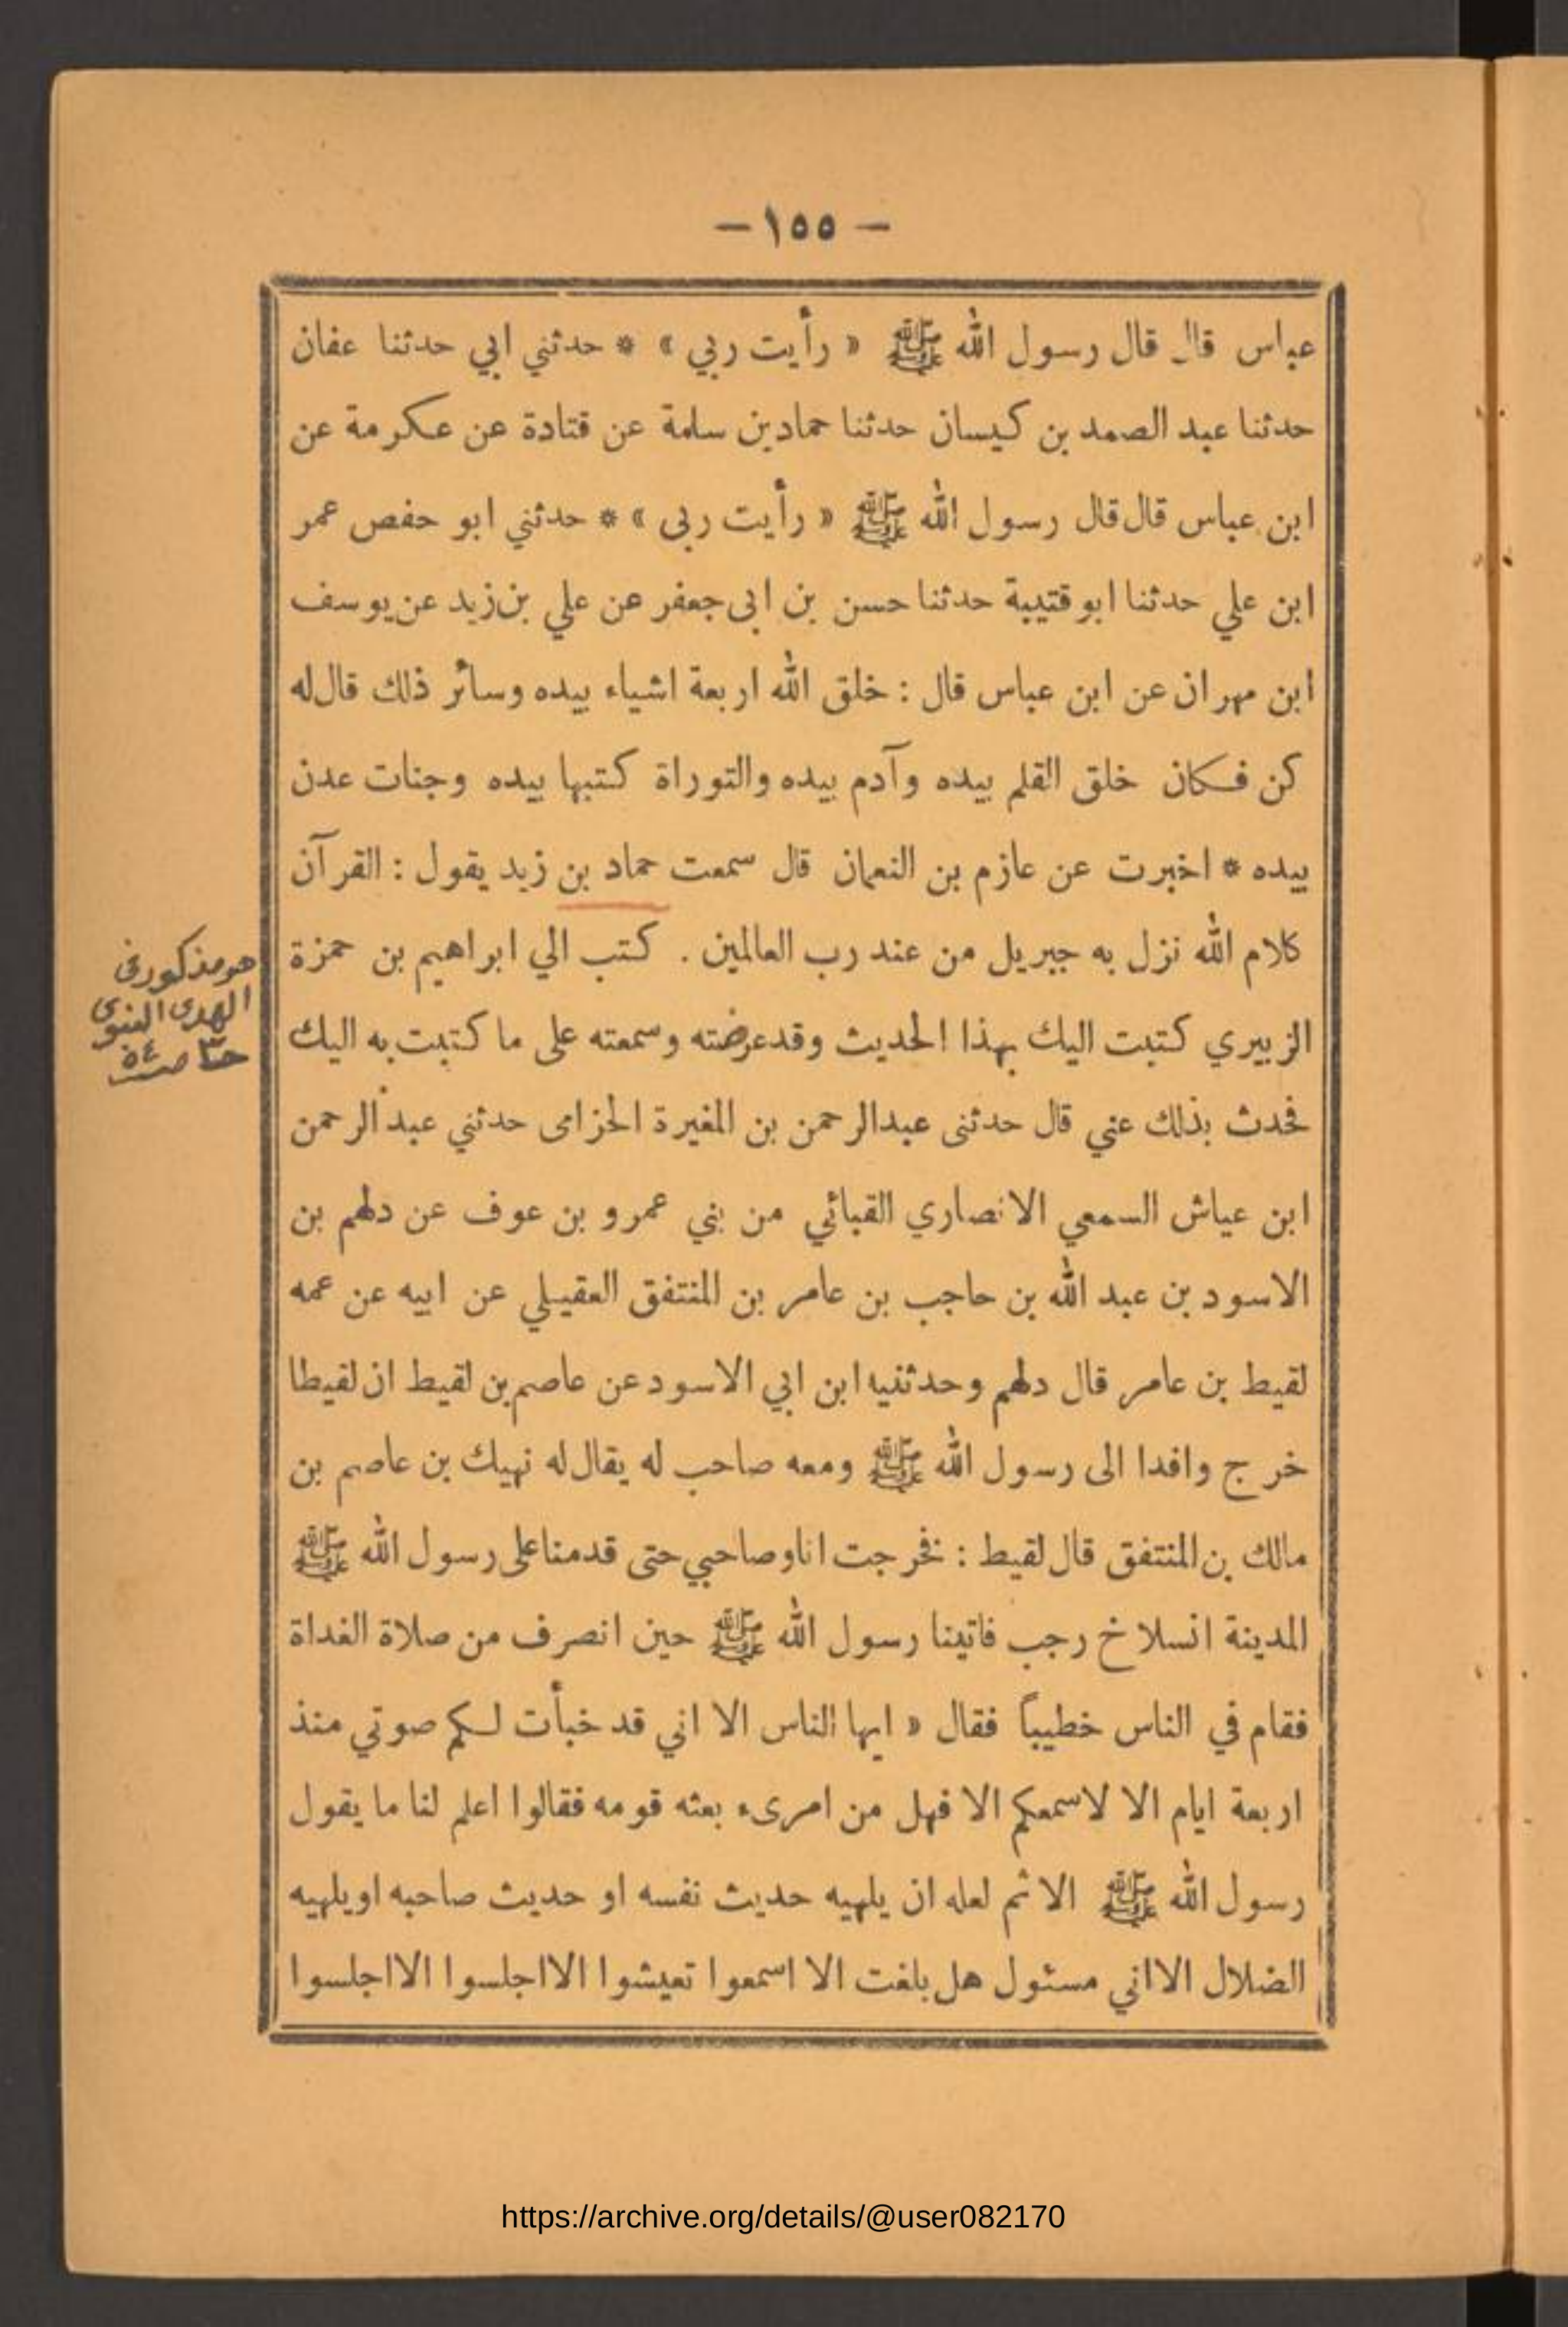 — ١٥٥ —
عباس قال قال رسول الله ﷺ « رأيت ربي » * حدثني ابي حدثنا عفان
حدثنا عبد الصمد بن كيسان حدثنا حماد بن سلمة عن قتادة عن عكرمة عن
ابن عباس قال قال رسول الله ﷺ « رأيت ربى » * حدثني ابو حفص عمر
ابن علي حدثنا ابو قتيبة حدثنا حسن بن ابى جعفر عن علي بن زيد عن يوسف
ابن مهران عن ابن عباس قال : خلق الله اربعة اشياء بيده وسائر ذلك قال له
كن فكان خلق القلم بيده وآدم بيده والتوراة كتبها بيده وجنات عدن
بيده * اخبرت عن عازم بن النعمان قال سمعت حماد بن زيد يقول : القرآن
كلام الله نزل به جبريل من عند رب العالمين . كتب الي ابراهيم بن حمزة
الزبيري كتبت اليك بهذا الحديث وقد عرضته وسمعته على ما كتبت به اليك
فحدث بذلك عني قال حدثنى عبدالرحمن بن المغيرة الحزامى حدثني عبد الرحمن
ابن عياش السمعي الانصاري القبائي من بني عمرو بن عوف عن دلهم بن
الاسود بن عبد الله بن حاجب بن عامر بن المنتفق العقيلي عن ابيه عن عمه
لقيط بن عامر قال دلهم وحدثنيه ابن ابي الاسود عن عاصم بن لقيط ان لقيطا
خرج وافدا الى رسول الله ﷺ ومعه صاحب له يقال له نهيك بن عاصم بن
مالك بن المنتفق قال لقيط : فخرجت انا وصاحبي حتى قدمنا على رسول الله ﷺ
المدينة انسلاخ رجب فاتينا رسول الله ﷺ حين انصرف من صلاة الغداة
فقام في الناس خطيباً فقال « ايها الناس الا اني قد خبأت لكم صوتي منذ
اربعة ايام الا لاسمعكم الا فهل من امرىء بعثه قومه فقالوا اعلم لنا ما يقول
رسول الله ﷺ الا ثم لعله ان يلهيه حديث نفسه او حديث صاحبه او يلهيه
الضلال الا اني مسئول هل بلغت الا اسمعوا تعيشوا الا اجلسوا الا اجلسوا
هو مذكور فى
الهدى النبوى
حـ٣ صـ ٥٤
https://archive.org/details/@user082170